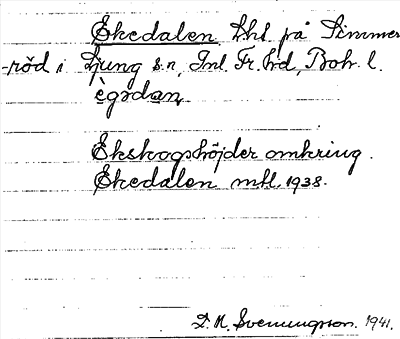 Ekedalen, khl på Simmer
-röd i Ljung sn, Inl. Fr. hd, Boh. l.
ègədan
Ekskogshöjder omkring.
Ekedalen mkl. 1938.
D. M. Svenungsson. 1941.